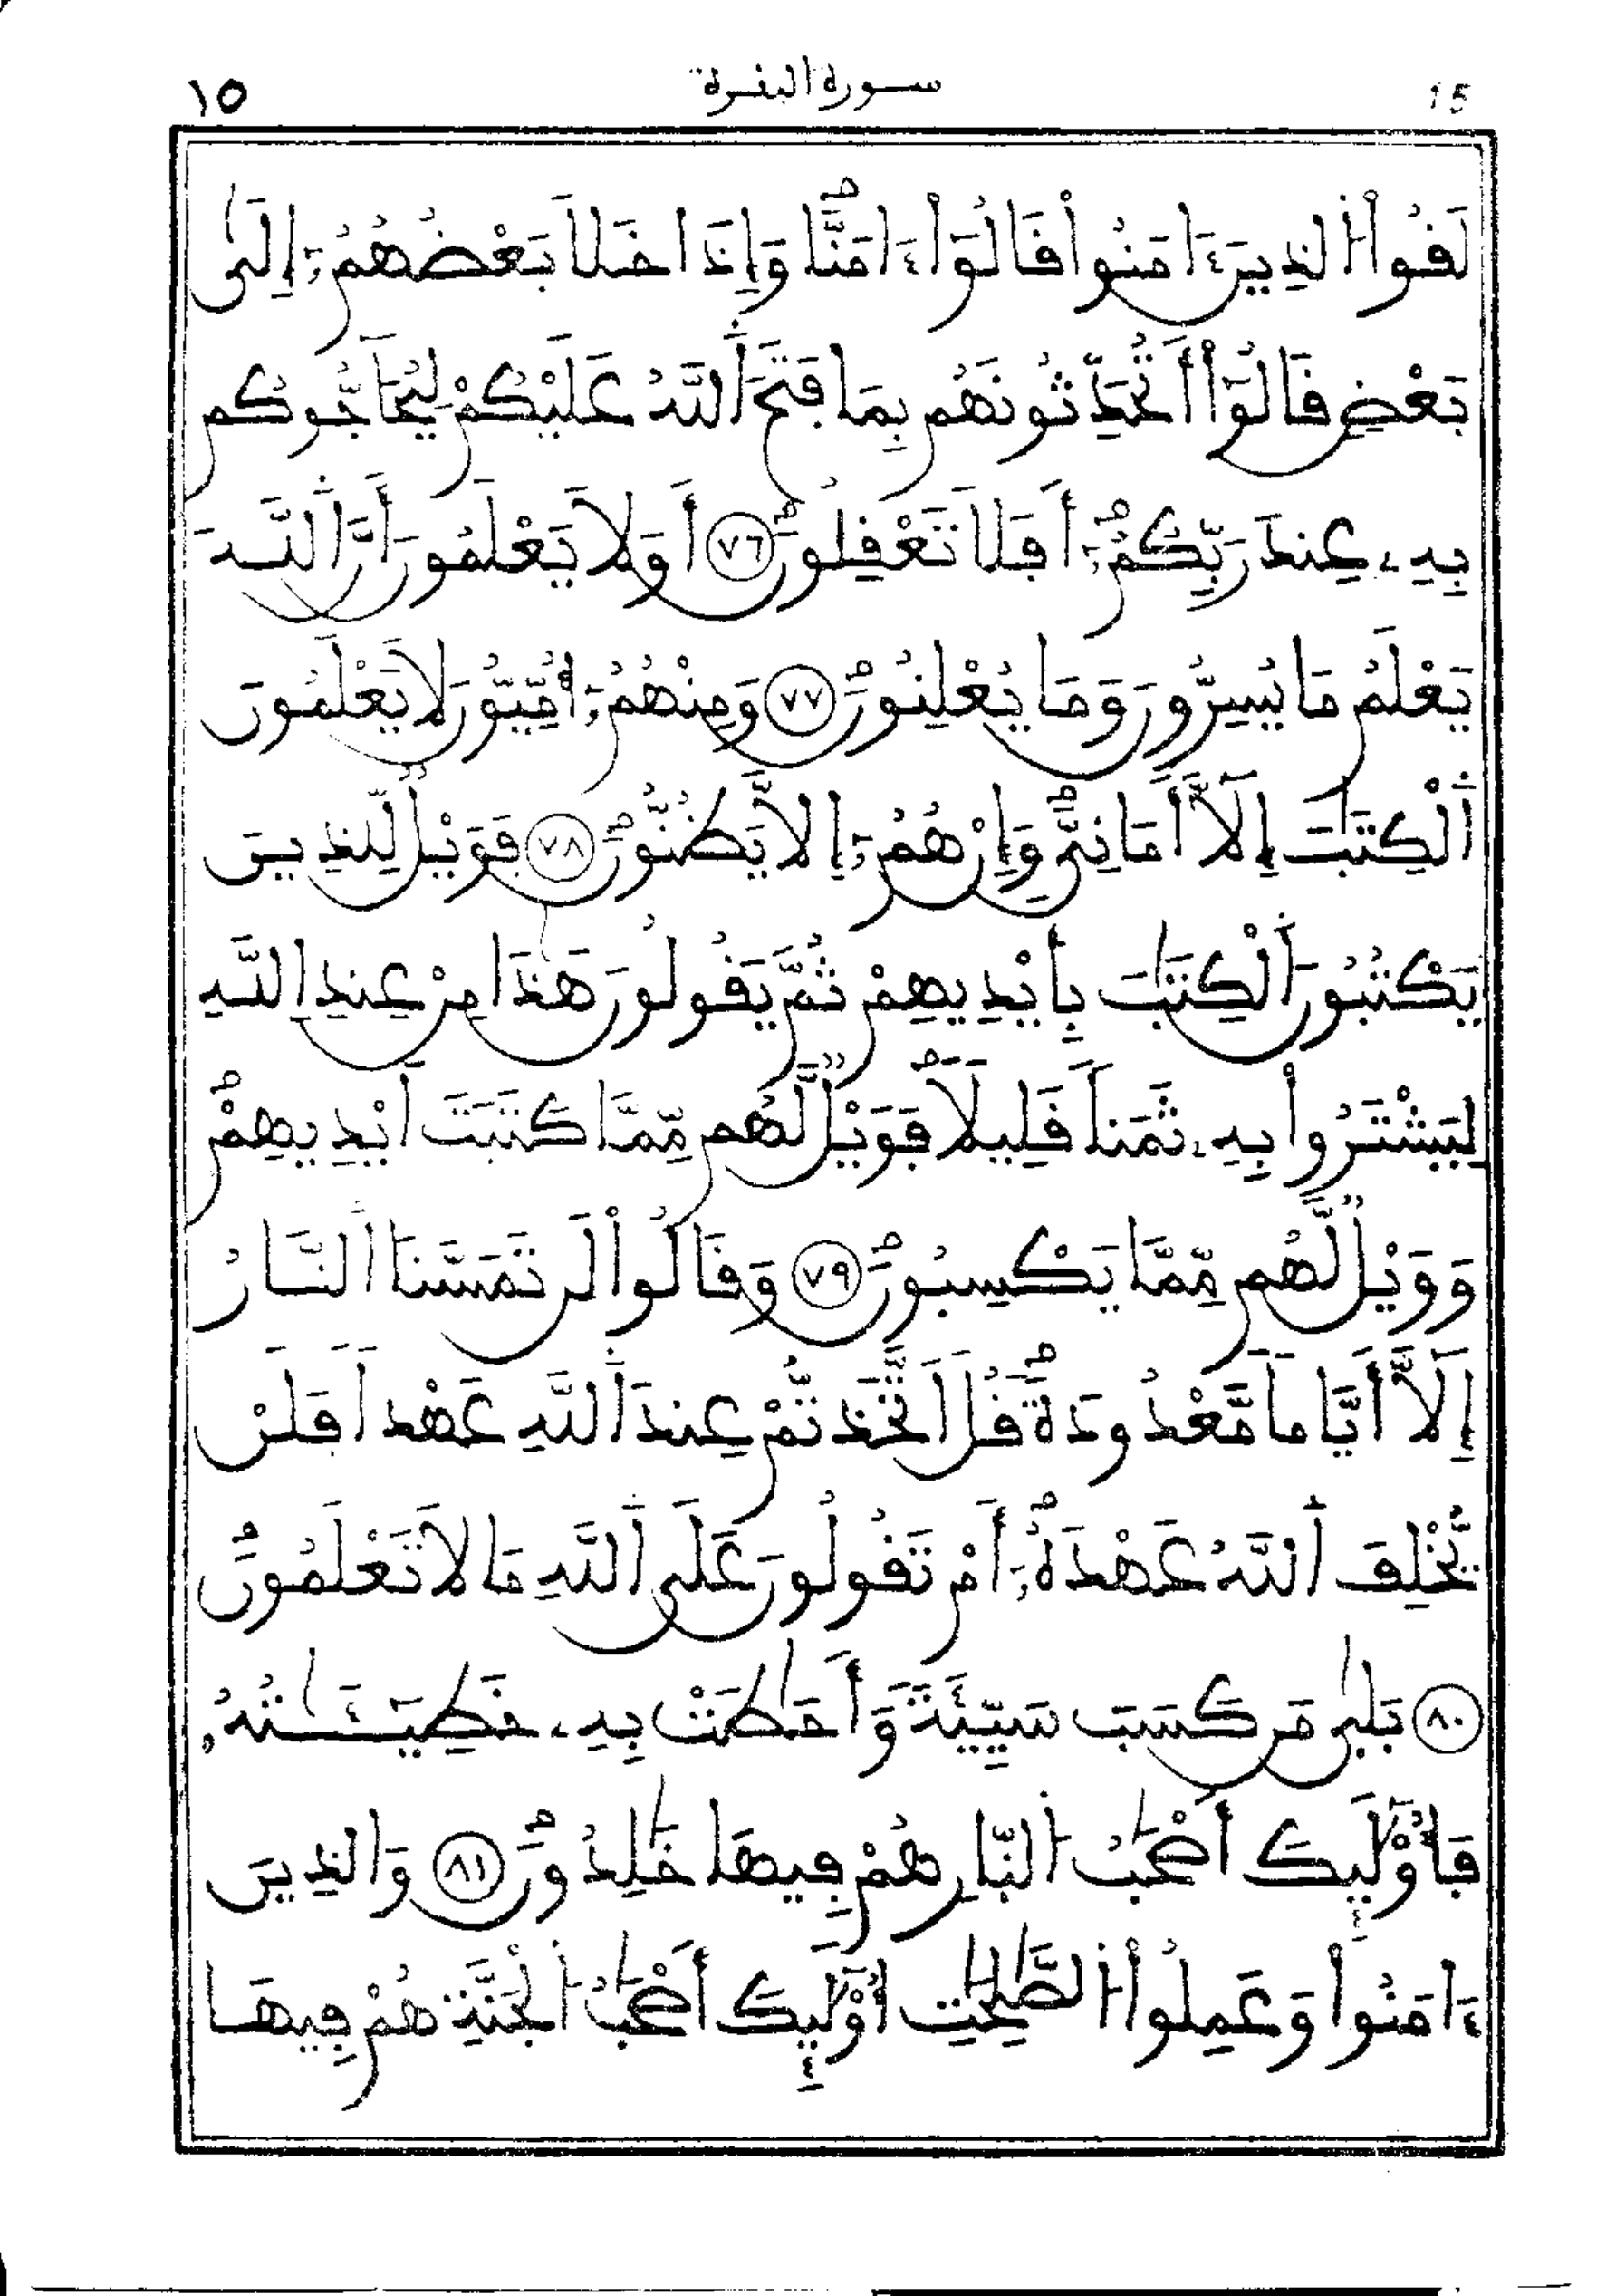 ١٥ سورة البقرة 15
لَقُواْ اُ۬لذِينَ ءَامَنُواْ قَالُوٓاْ ءَامَنَّاۖ وَإِذَا خَلَا بَعْضُهُمُۥٓ إِلَىٰ
بَعْضٖ قَالُوٓاْ أَتُحَدِّثُونَهُم بِمَا فَتَحَ اَ۬للَّهُ عَلَيْكُمْ لِيُحَآجُّوكُم
بِهِۦ عِندَ رَبِّكُمُۥٓۖ أَفَلَا تَعْقِلُونَۖ ٧٦ أَوَلَا يَعْلَمُونَ أَنَّ اَ۬للَّهَ
يَعْلَمُ مَا يُسِرُّونَ وَمَا يُعْلِنُونَۖ ٧٧ وَمِنْهُمُۥٓ أُمِّيُّونَ لَا يَعْلَمُونَ
اَ۬لْكِتَٰبَ إِلَّآ أَمَانِيَّ وَإِنْ هُمُۥٓ إِلَّا يَظُنُّونَۖ ٧٨ فَوَيْلٞ لِّلذِينَ
يَكْتُبُونَ اَ۬لْكِتَٰبَ بِأَيْدِيهِمْ ثُمَّ يَقُولُونَ هَٰذَا مِنْ عِندِ اِ۬للَّهِ
لِيَشْتَرُواْ بِهِۦ ثَمَناٗ قَلِيلاٗۖ فَوَيْلٞ لَّهُم مِّمَّا كَتَبَتَ اَيْدِيهِمْۖ
وَوَيْلٞ لَّهُم مِّمَّا يَكْسِبُونَۖ ٧٩ وَقَالُواْ لَن تَمَسَّنَا اَ۬لنَّارُ
إِلَّآ أَيَّاماٗ مَّعْدُودَةٗۖ قُلَ اَتَّخَذتُّمْ عِندَ اَ۬للَّهِ عَهْداٗ فَلَنْ
يُّخْلِفَ اَ۬للَّهُ عَهْدَهُۥٓۖ أَمْ تَقُولُونَ عَلَى اَ۬للَّهِ مَا لَا تَعْلَمُونَۖ
٨٠ بَلَىٰ مَن كَسَبَ سَيِّئَةٗ وَأَحَٰطَتْ بِهِۦ خَطِيـَٔـٰتُهُۥ
فَأُوْلَٰٓئِكَ أَصْحَٰبُ اُ۬لنّارِ هُمْ فِيهَا خَٰلِدُونَۖ ٨١ وَالذِينَ
ءَامَنُواْ وَعَمِلُواْ اُ۬لصَّٰلِحَٰتِ أُوْلَٰٓئِكَ أَصْحَٰبُ اُ۬لْجَنَّةِ هُمْ فِيهَا